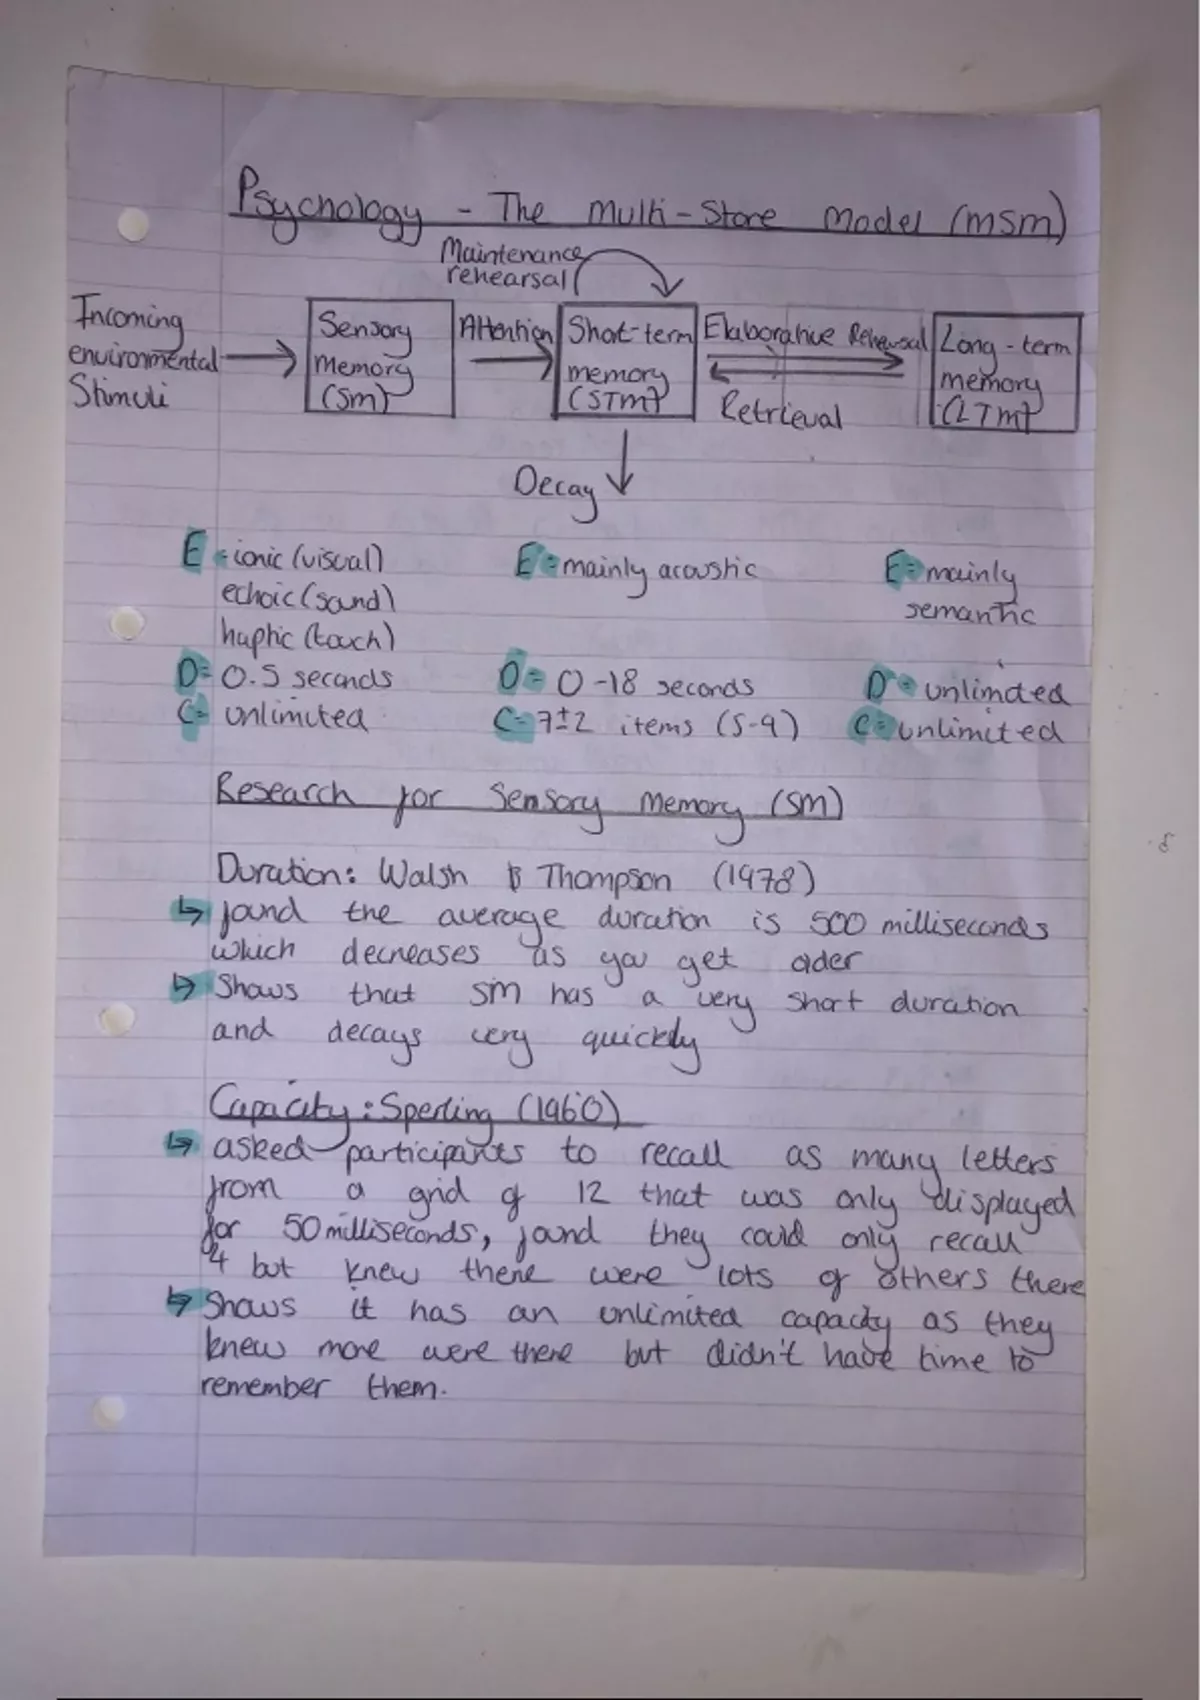 Psychology - The Multi-Store Model (MSM)
Maintenance
rehearsal
Incoming
environmental
Stimuli
Sensory
Memory
(SM)
Attention
Short-term
memory
(STM)
Elaborative Rehearsal
Retrieval
Long-term
memory
(LTM)
Decay
E = ionic (visual)
echoic (sound)
haphic (touch)
D = 0.5 seconds
C = unlimited
E = mainly acoustic
D = 0-18 seconds
C = 7±2 items (5-9)
E = mainly
semantic
D = unlimited
C = unlimited
Research for Sensory Memory (SM)
Duration: Walsh & Thompson (1978)
↳ found the average duration is 500 milliseconds
which decreases as you get older
↳ Shows that SM has a very short duration
and decays very quickly
Capacity: Sperling (1960)
↳ asked participants to recall as many letters
from a grid of 12 that was only displayed
for 50 milliseconds, found they could only recall
4 but knew there were lots of others there
↳ Shows it has an unlimited capacity as they
knew more were there but didn't have time to
remember them.